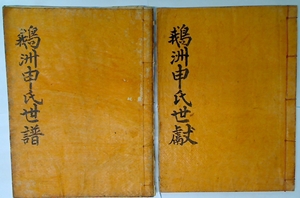 鵝洲申氏世譜
鵝洲申氏世獻